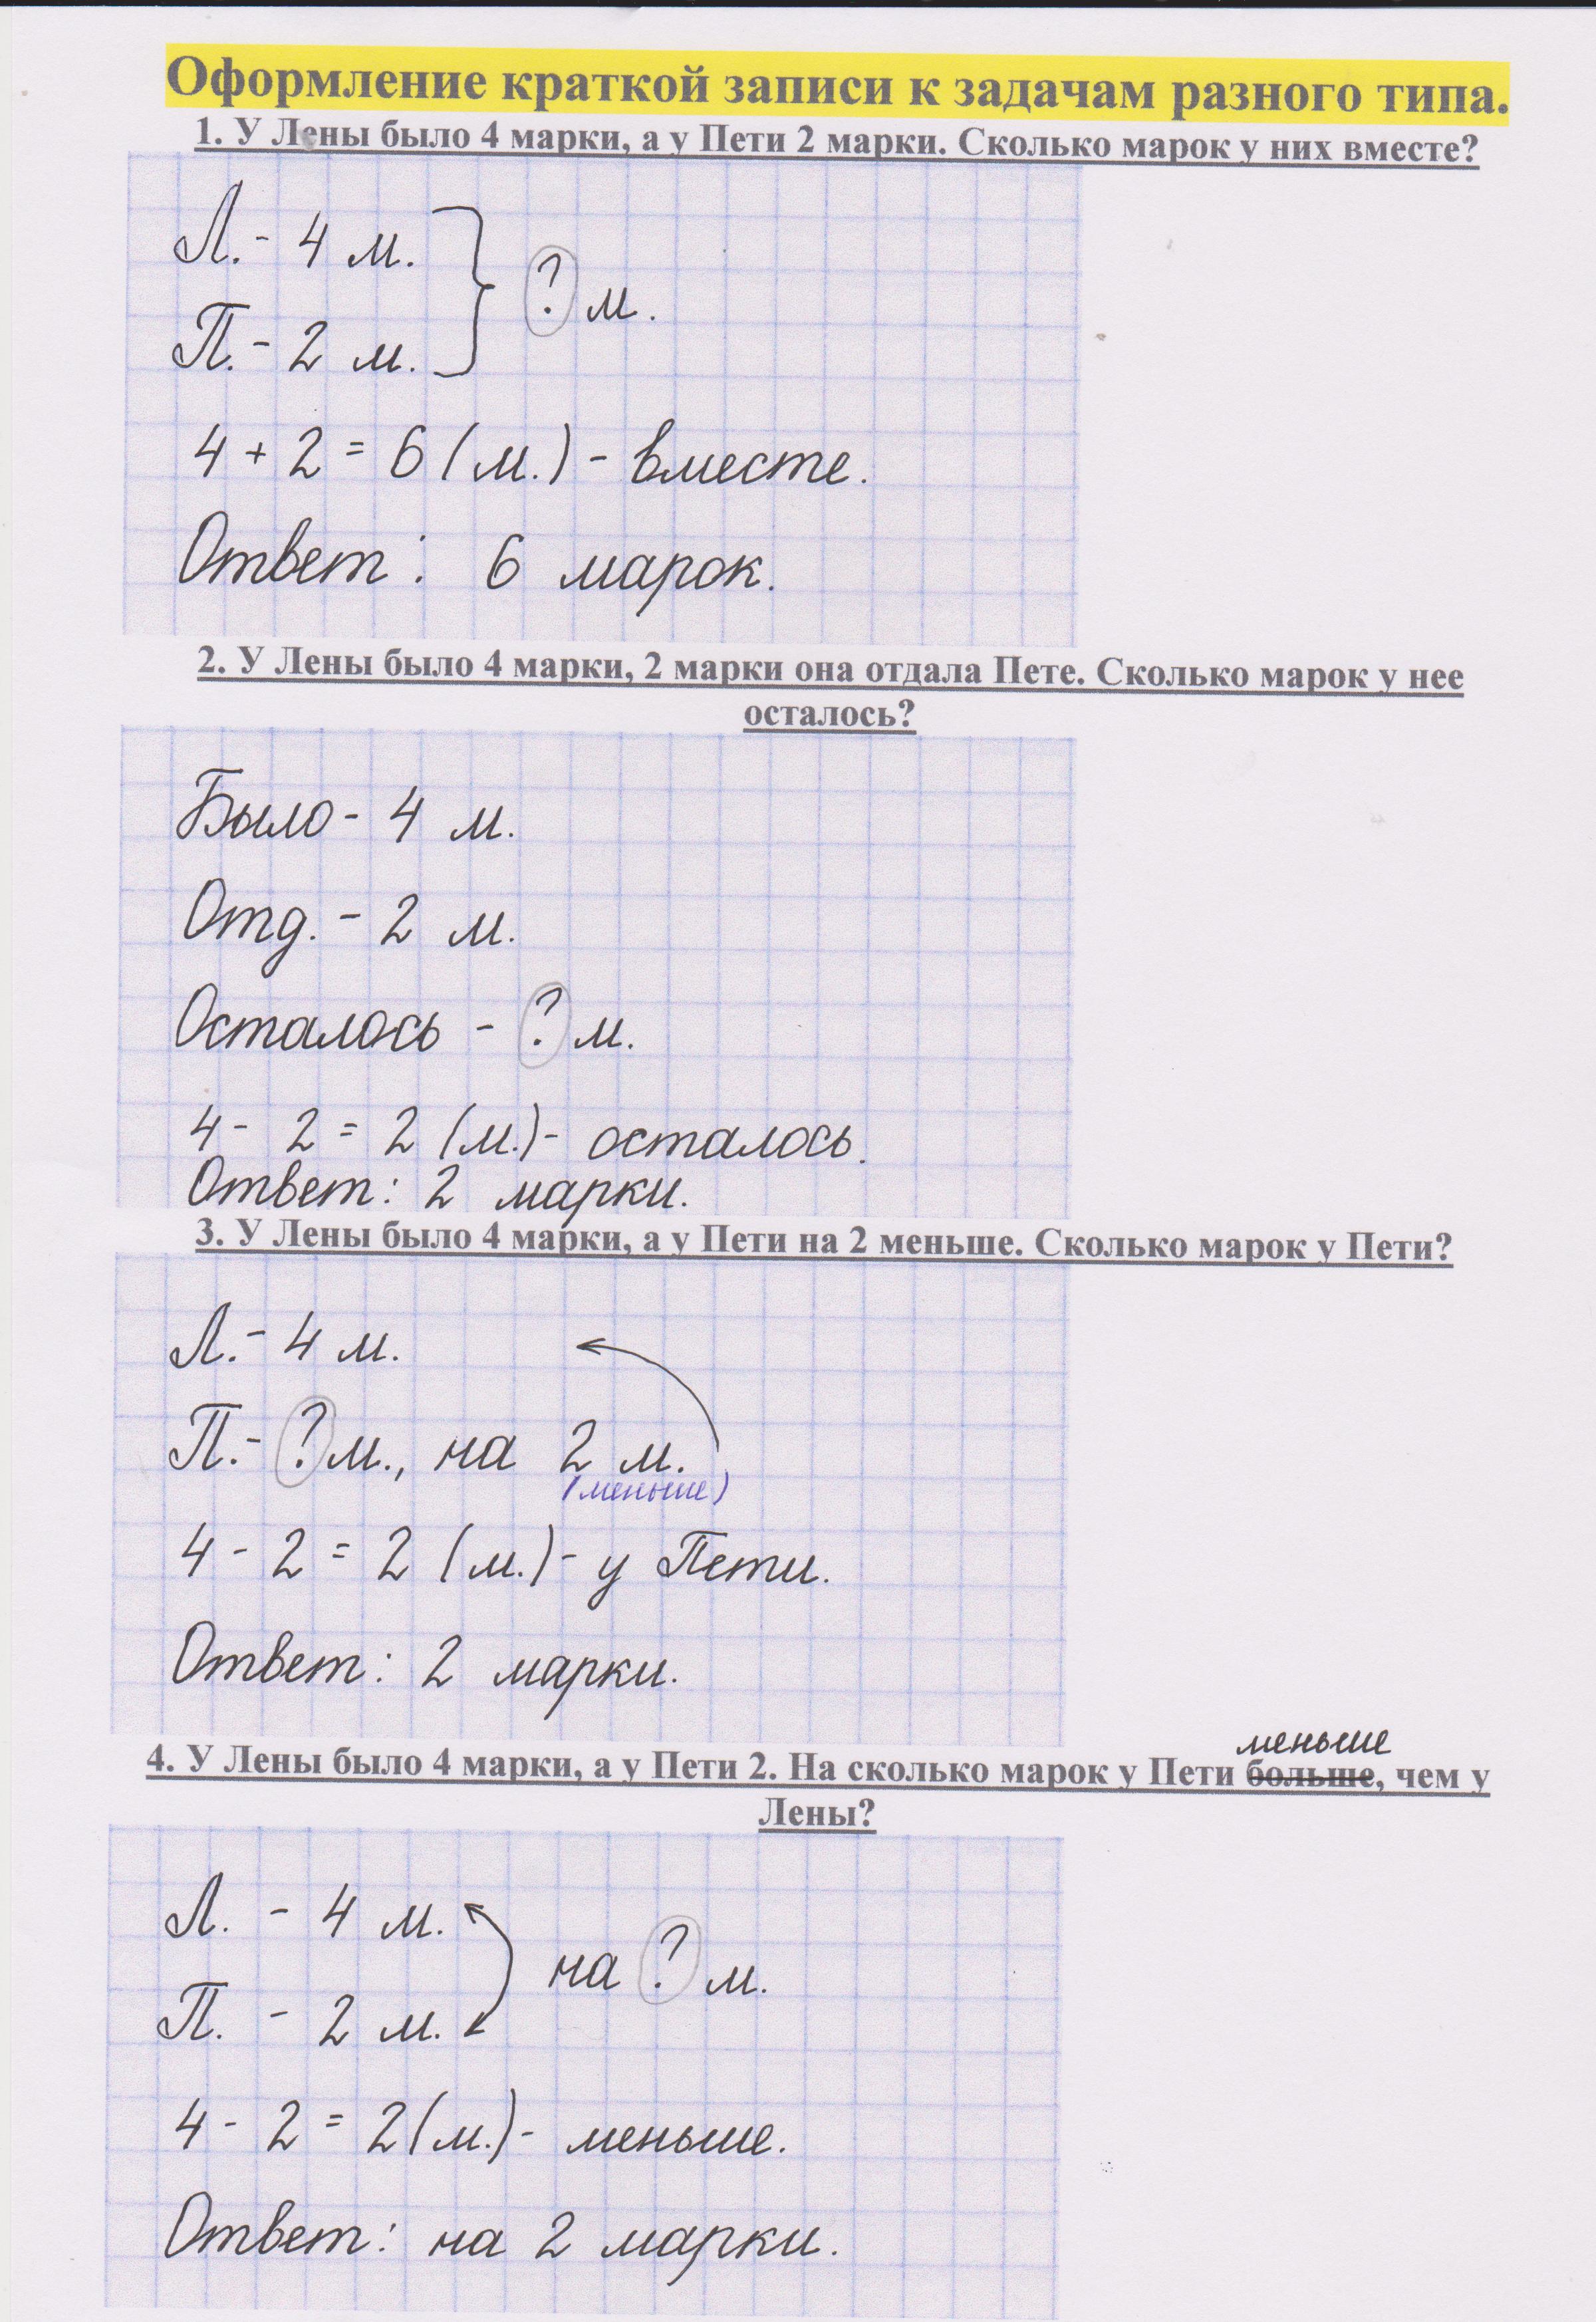 Оформление краткой записи к задачам разного типа.
1. У Лены было 4 марки, а у Пети 2 марки. Сколько марок у них вместе?
Л. - 4 м.
? м.
П. - 2 м.
4 + 2 = 6 (м.) - вместе.
Ответ: 6 марок.
2. У Лены было 4 марки, 2 марки она отдала Пете. Сколько марок у нее
осталось?
Было - 4 м.
Отд. - 2 м.
Осталось - ? м.
4 - 2 = 2 (м.) - осталось.
Ответ: 2 марки.
3. У Лены было 4 марки, а у Пети на 2 меньше. Сколько марок у Пети?
Л. - 4 м.
П. - ? м., на 2 м.
(меньше)
4 - 2 = 2 (м.) - у Пети.
Ответ: 2 марки.
меньше
4. У Лены было 4 марки, а у Пети 2. На сколько марок у Пети больше, чем у
Лены?
Л. - 4 м.
на ? м.
П. - 2 м.
4 - 2 = 2 (м.) - меньше.
Ответ: на 2 марки.